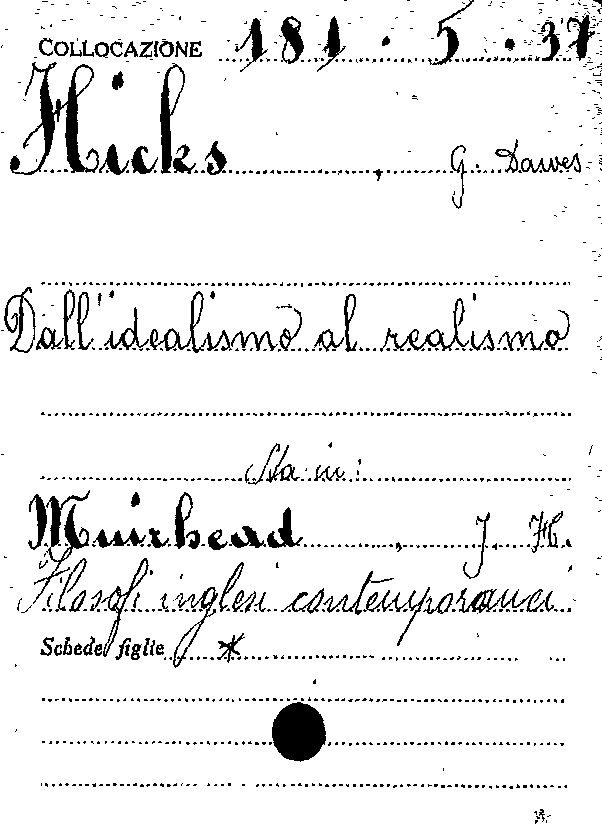 COLLOCAZIONE 181.5.37
Hicks, G. Dawes
Dall'idealismo al realismo
Sta in:
Muirhead, J. H.
Filosofi inglesi contemporanei
Schede figlie *